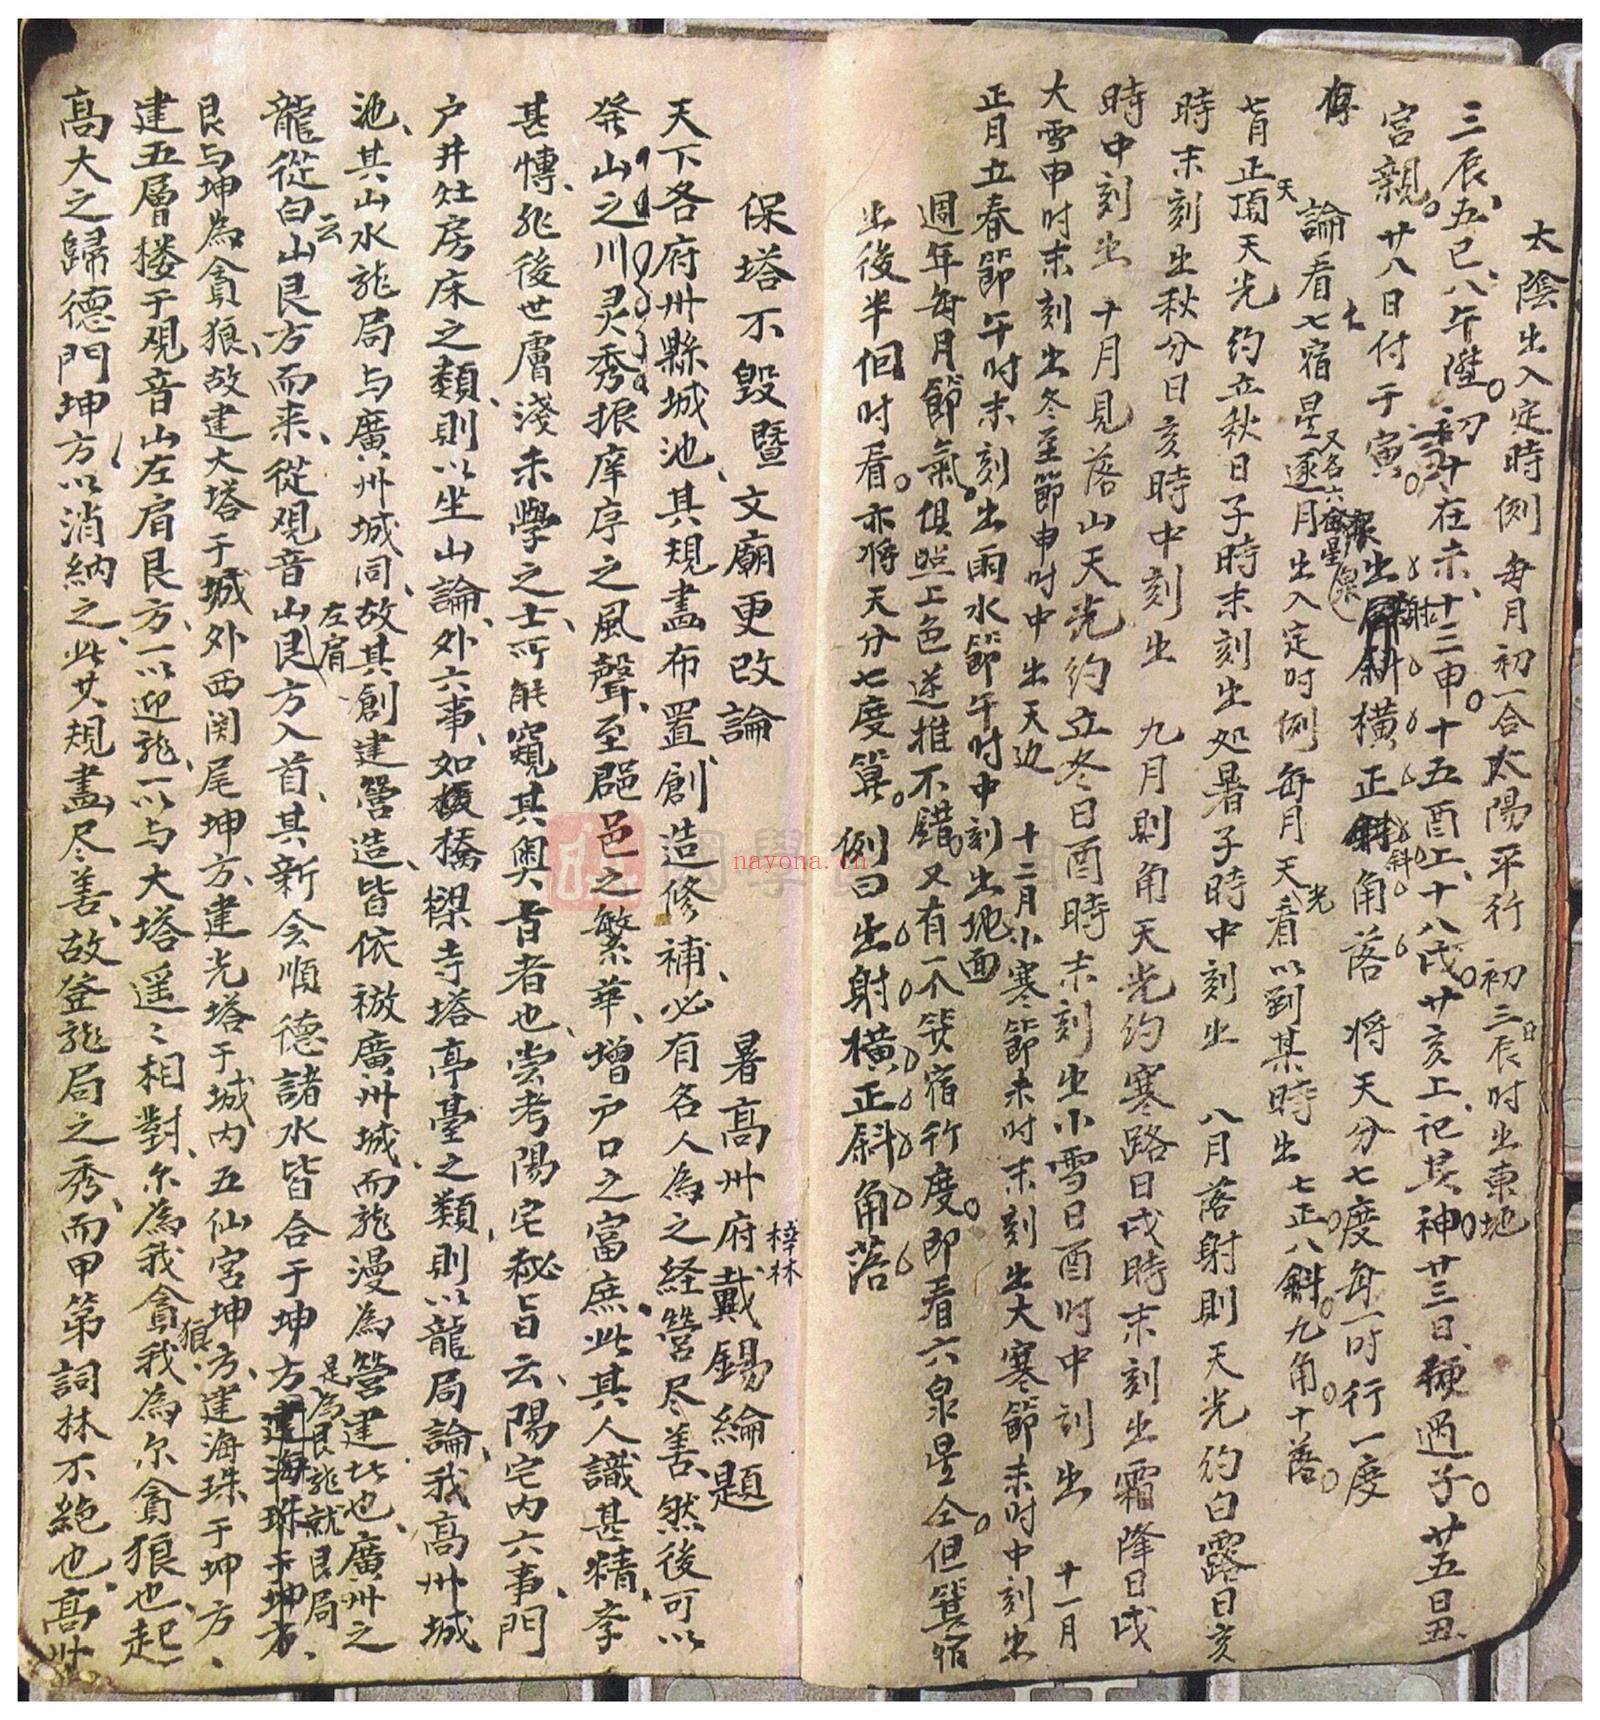 太陰出入定時例 每月初一合太陽平行 初三日辰时出東地
三辰五巳八午陞 初十在未十三申十五酉上十八戌廿亥上记其神廿三日硬過子廿五日丑
宮親廿八日付于寅 出射斜橫正斜角落 将天分七度每一时行一度
論看七宿星 又名六金星 逐月出入定时例 每月天光看以到某時出 七正八斜九角十落
七月正頂天光约立秋日子時末刻出处暑子時中刻出 八月落射則天光约白露日亥
時末刻出秋分日亥時中刻出 九月則角天光约寒路日戌時末刻出霜降日戌
時中刻出 十月見落山天光约立冬日酉時末刻出小雪日酉时中刻出 十一月
大雪申时末刻出冬至節申时中出天边 十二月小寒節未时末刻出大寒節未时中刻出
正月立春節午时末刻出雨水節午时中刻出地面
週年每月節氣俱照上色遂推不錯又有一个箕宿行度即看六泉星仝但箕宿
出後半但时看亦将天分七度算 例曰出射橫正斜角落
保塔不毁暨文廟更改論 暑高州府戴錫綸題
梓林
天下各府州縣城池其規畫布置創造修補必有名人為之経營尽善然後可以
癸山之川灵秀振庠序之風聲至郡邑之繁華增户口之富庶此其人識甚精李
甚慱非後世膚淺未學之士所能窺其奥旨者也尝考陽宅秘旨云陽宅内六事門
户井灶房床之類則以坐山論外六事如橋樑寺塔亭臺之類則以龍局論我高州城
池其山水龍局与廣州城同故其創建營造皆依徬廣州城而非漫為營建也廣州之
龍從白云山艮方而来從观音山左肩艮方入首其新会順德諸水皆合于坤方是為艮龍就艮局
艮与坤為貪狼故建大塔于城外西関尾坤方建光塔于城内五仙宮坤方建海珠于坤方
建五層楼于观音山左肩艮方一以迎龍一以与大塔遥〻相對尔為我貪狼我為尔貪狼也起
高大之歸德門坤方以消納之此其規畫尽善故登龍局之秀而甲第詞林不絶也高州